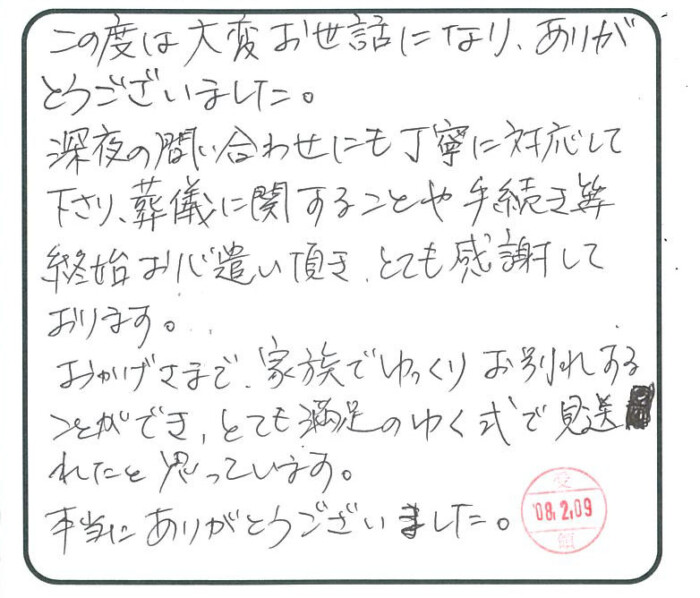 この度は大変お世話になり、ありが
とうございました。
深夜の問い合わせにも丁寧に対応して
下さり、葬儀に関することや手続き等
終始お心遣い頂き、とても感謝して
おります。
おかげさまで、家族でゆっくりお別れする
ことができ、とても満足のゆく式で見送
れたと思っています。
本当にありがとうございました。
受
'08.2.09